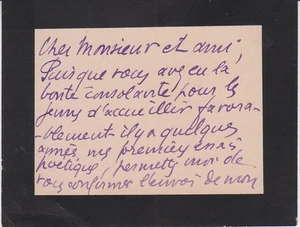 Cher Monsieur et ami,
Puisque vous avez eu la
bonté consolante pour les
jeunes d'accueillir favora-
-blement il y a quelques
années mes premiers essais
poétiques, permettez moi de
vous confirmer l'envoi de mon